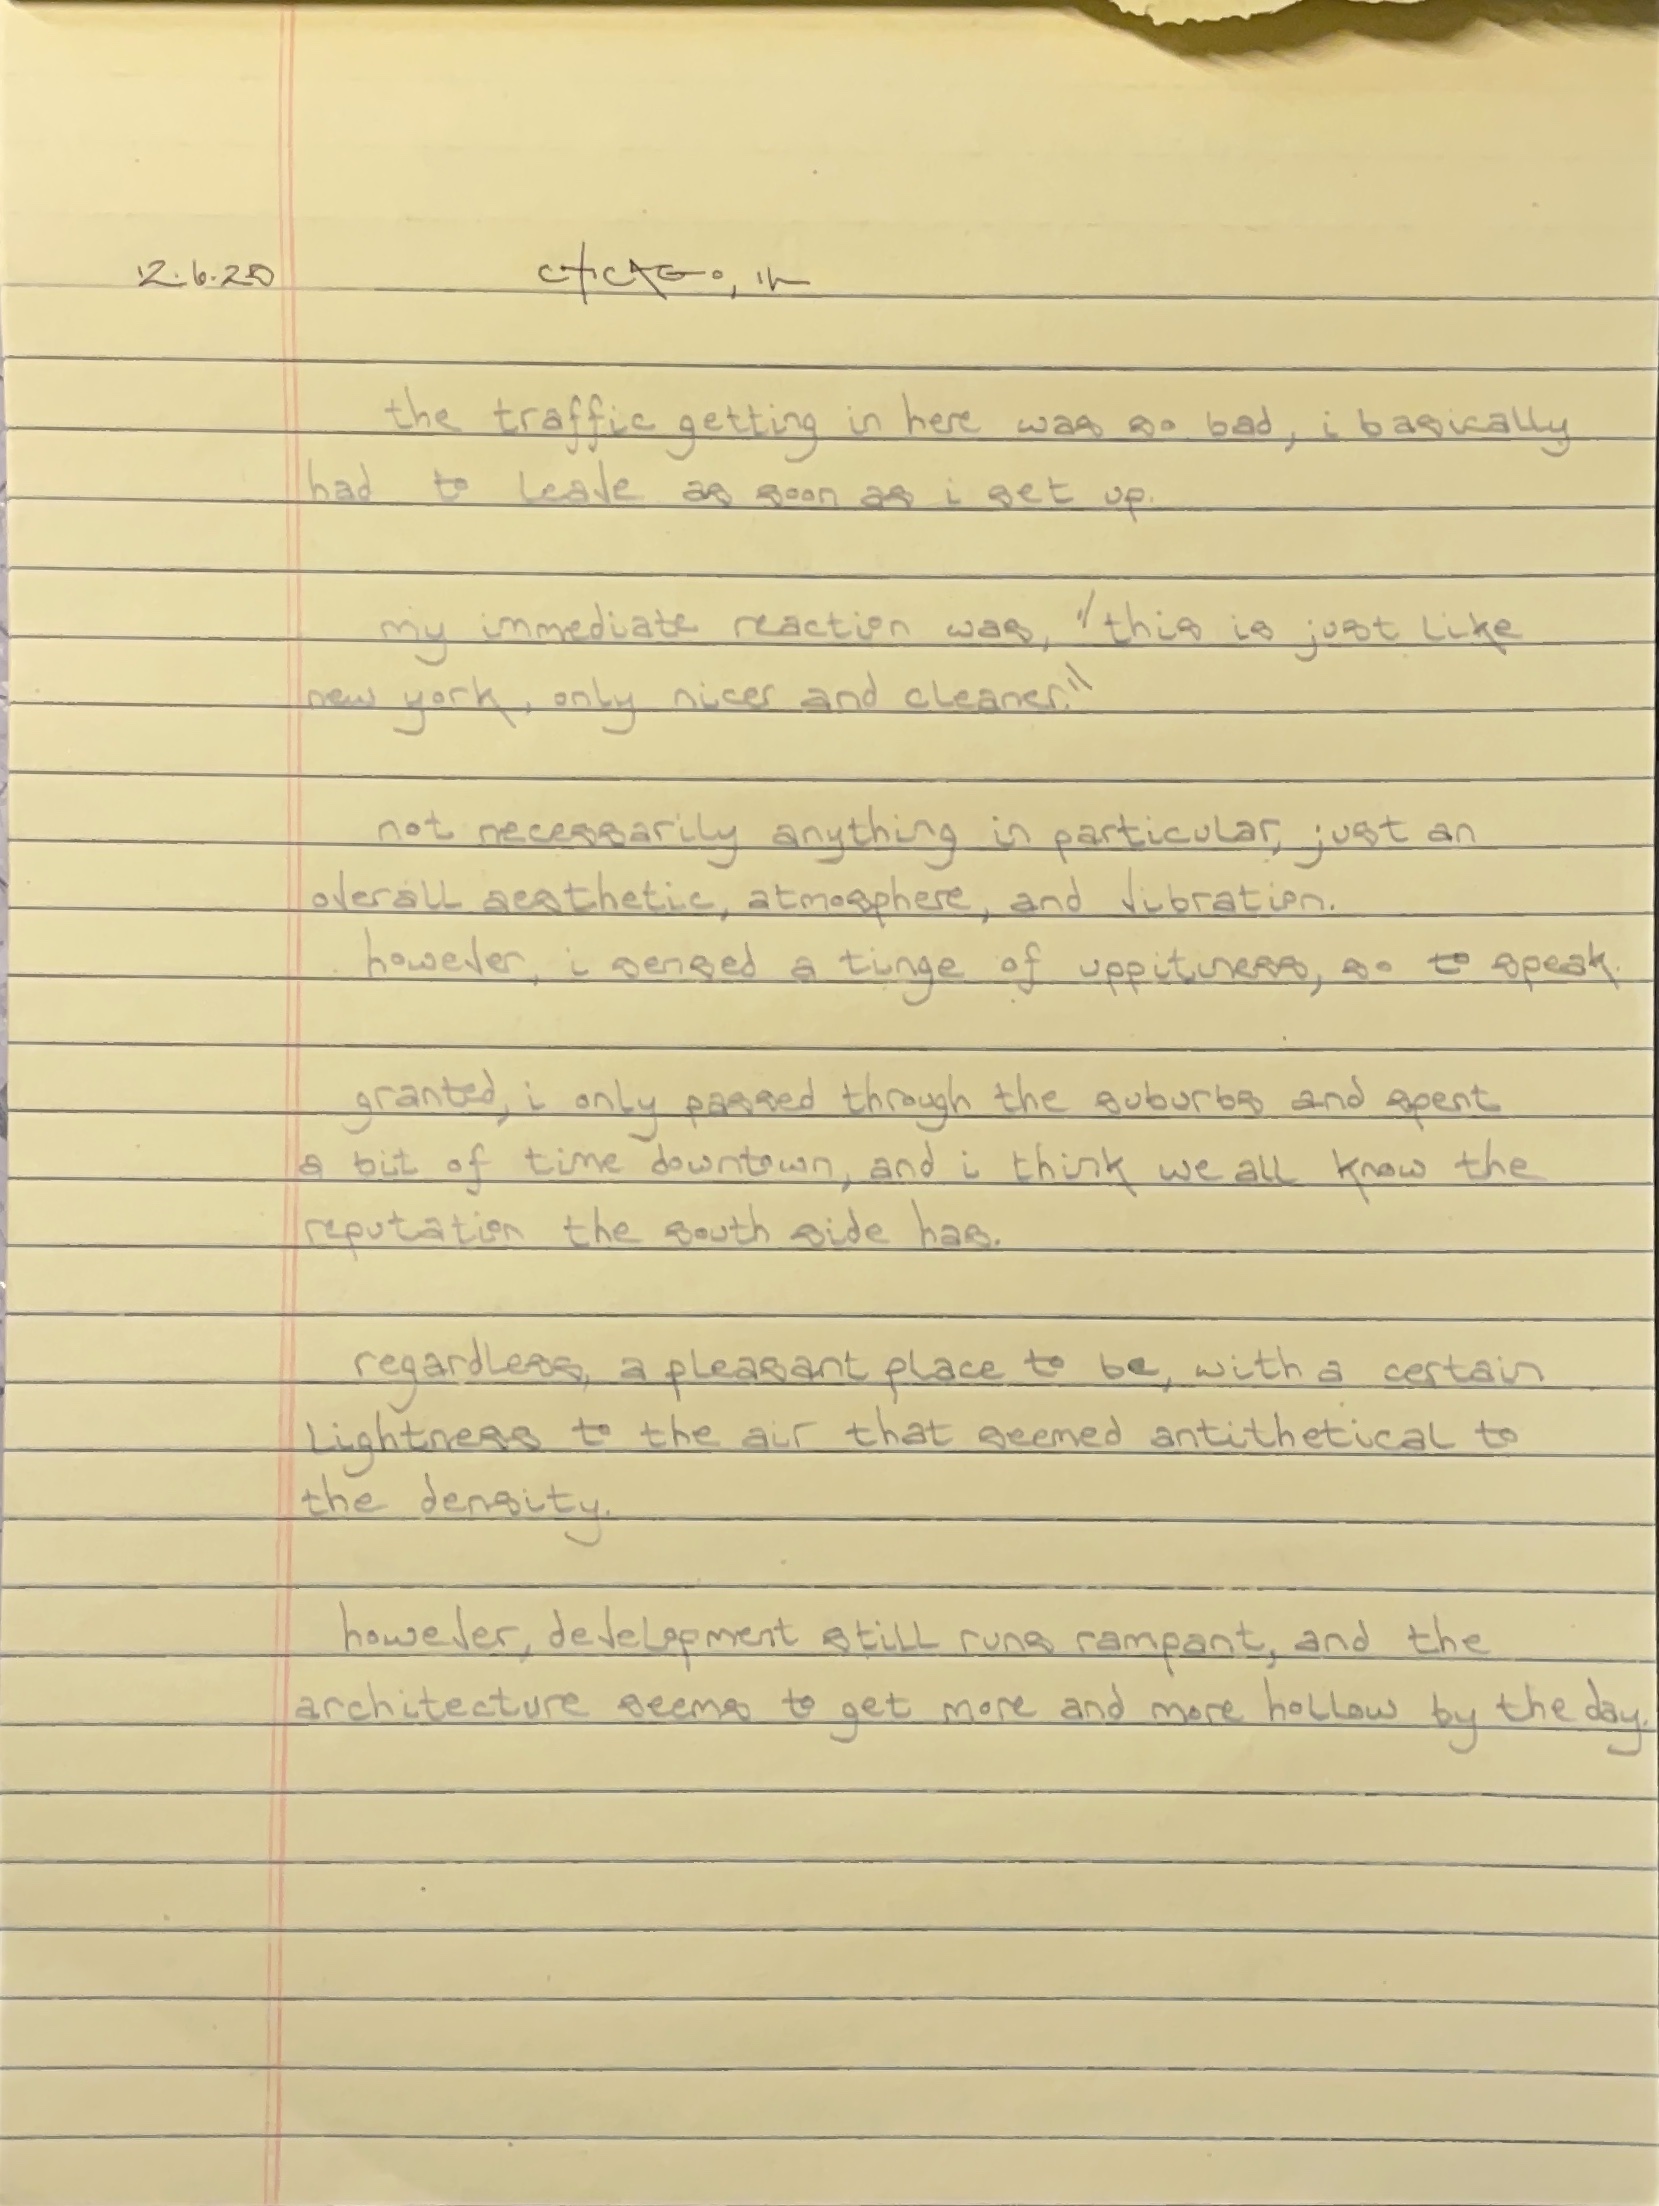 12.6.20 CHICAGO, IL
the traffic getting in here was so bad, i basically
had to leave as soon as i set up.
my immediate reaction was, "this is just like
new york, only nicer and cleaner."
not necessarily anything in particular, just an
overall aesthetic, atmosphere, and vibration.
however, i sensed a tinge of uppitiness, so to speak.
granted, i only passed through the suburbs and spent
a bit of time downtown, and i think we all know the
reputation the south side has.
regardless, a pleasant place to be, with a certain
lightness to the air that seemed antithetical to
the density.
however, development still runs rampant, and the
architecture seems to get more and more hollow by the day.